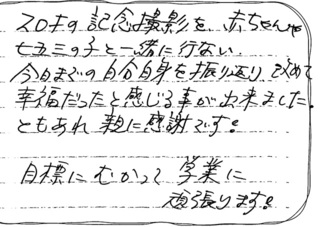 20才の記念撮影を、赤ちゃんや
七五三の子と一緒に行ない、
今日までの自分自身を振り返り、改めて
幸福だったと感じる事が出来ました。
ともあれ 親に感謝です!
目標にむかって 学業に
頑張ります!